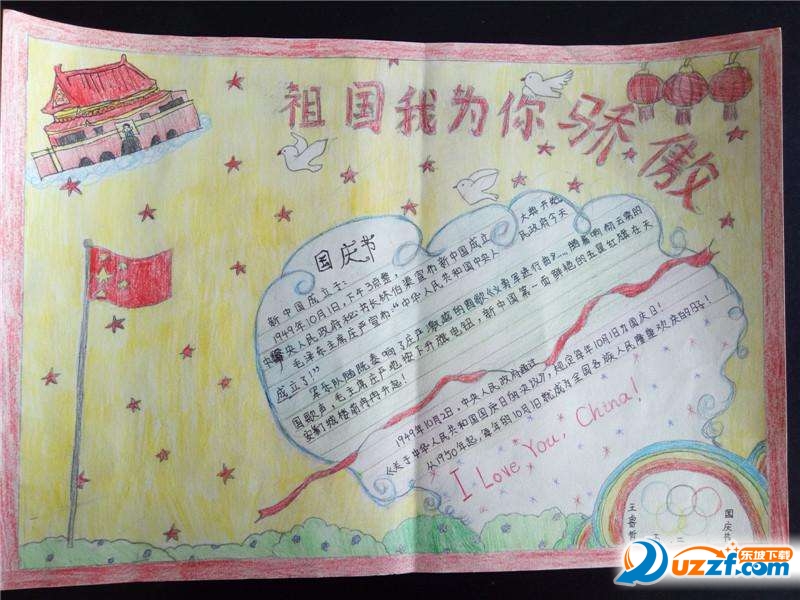 祖国我为你骄傲
国庆节
新中国成立于:
1949年10月1日,下午3时整,
中央人民政府秘书长林伯渠宣布新中国成立 大典开始,
毛泽东主席庄严宣布:"中华人民共和国中央人 民政府今天
成立了!"
军乐队随既奏响了庄严激越的国歌《义勇军进行曲》…… 随着响彻云霄的
国歌声,毛主席庄严地按下升旗电钮,新中国第一面鲜艳的五星红旗在天
安门城楼前冉冉升起!
1949年10月2日,中央人民政府通过
《关于中华人民共和国国庆日的决议》,规定每年10月1日为国庆日!
从1950年起,每年的10月1日就成为全国各族人民隆重欢庆的日子!
I Love You, China!
国庆节
王睿哲
东坡下载
uzzf.com